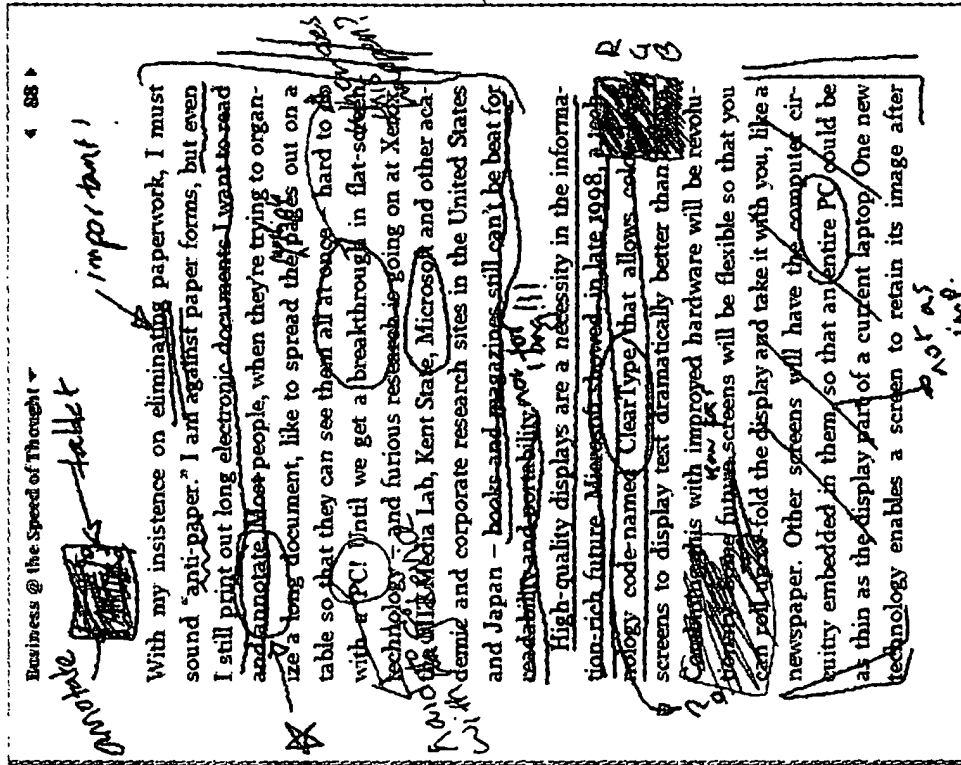 Business @ the Speed of Thought
88
important!
annotate
tablet
With my insistence on eliminating paperwork, I must
sound "anti-paper." I am against paper forms, but even
I still print out long electronic documents I want to read
and annotate. Most people, when they're trying to organ-
ize a long document, like to spread the pages out on a
table so that they can see them all at once – hard to do
with a PC! Until we get a breakthrough in flat-screen
technology – and furious research is going on at Xerox,
the MIT Media Lab, Kent State, Microsoft and other aca-
demic and corporate research sites in the United States
and Japan – books and magazines still can't be beat for
readability and portability.
not for long!!!
High-quality displays are a necessity in the informa-
tion-rich future. Microsoft showed in late 1998, a
nology code-named ClearType, that allows
screens to display text dramatically better than
R
G
B
Combining this with improved hardware will be revolu-
tionary. Some future screens will be flexible so that you
can roll up or fold the display and take it with you, like a
newspaper. Other screens will have the computer cir-
cuitry embedded in them, so that an entire PC could be
as thin as the display part of a current laptop. One new
technology enables a screen to retain its image after
not as
imp.